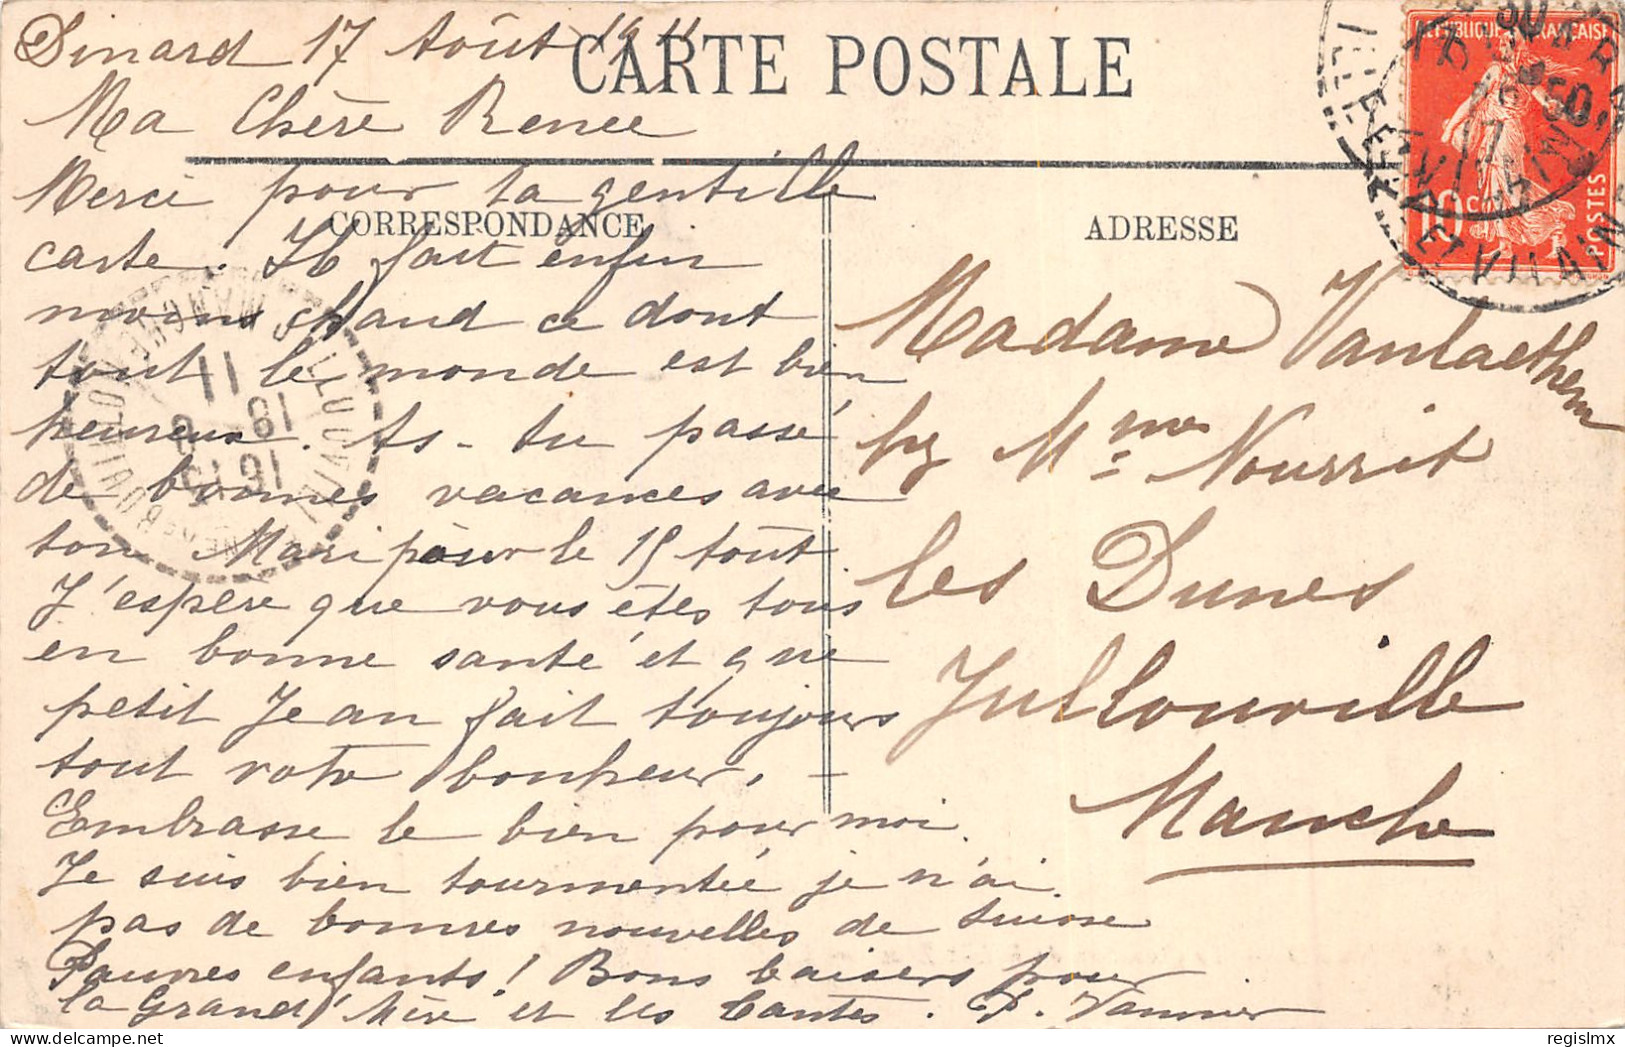 Dinard 17 Août 1911
CARTE POSTALE
Ma Chère Renée
Merci pour ta gentille
carte. Il fait enfin
moins chaud ce dont
tout le monde est bien
heureux. As-tu passé
de bonnes vacances avec
ton Mari pour le 15 Août
J'espère que vous êtes tous
en bonne santé et que
petit Jean fait toujours
tout votre bonheur. –
Embrasse le bien pour moi.
Je suis bien tourmentée je n'ai
pas de bonnes nouvelles de Suisse
Pauvres enfants! Bons baisers pour
la Grand'Mère et les tantes. P. Vannier
CORRESPONDANCE
ADRESSE
Madame Vanlaethem
chez Mme Nourrit
les Dunes
Jullouville
Manche
REPUBLIQUE FRANÇAISE
10 c
POSTES
ILLE ET VILAINE
JULLOUVILLE
MANCHE
11
18 - 8
16 15
regislmx
delcampe.net